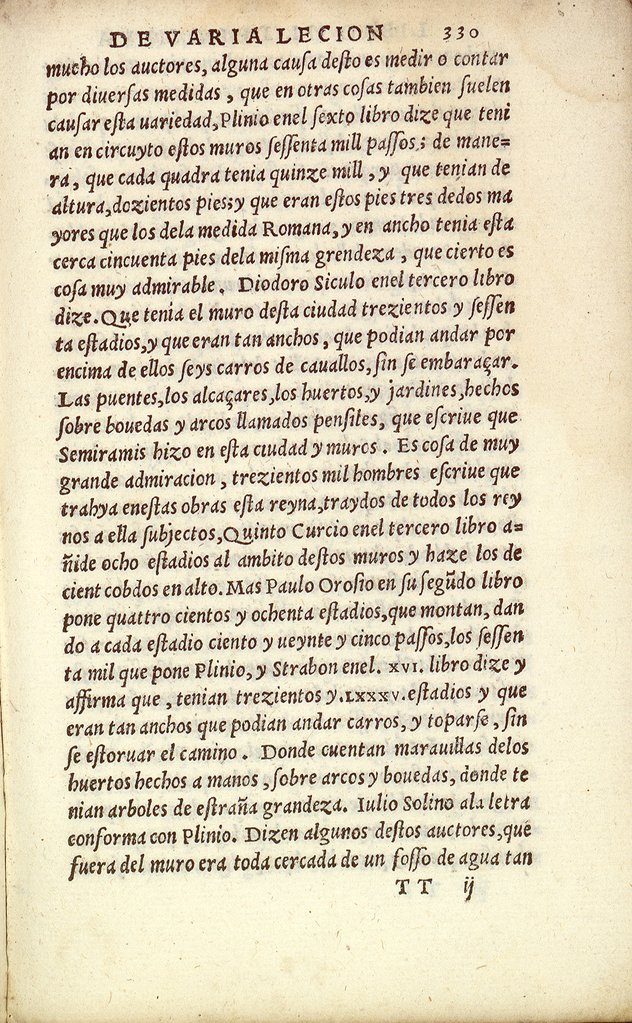 DE VARIA LECION 330
mucho los auctores, alguna causa desto es medir o contar
por diuersas medidas, que en otras cosas tambien suelen
causar esta uariedad, Plinio enel sexto libro dize que teni
an en circuyto estos muros sessenta mill passos; de mane=
ra, que cada quadra tenia quinze mill, y que tenian de
altura, dozientos pies; y que eran estos pies tres dedos ma
yores que los dela medida Romana, y en ancho tenia esta
cerca cincuenta pies dela misma grendeza, que cierto es
cosa muy admirable. Diodoro Siculo enel tercero libro
dize. Que tenia el muro desta ciudad trezientos y sessen
ta estadios, y que eran tan anchos, que podian andar por
encima de ellos seys carros de cauallos, sin se embaraçar.
Las puentes, los alcaçares, los huertos, y jardines, hechos
sobre bouedas y arcos llamados pensiles, que escriue que
Semiramis hizo en esta ciudad y muros. Es cosa de muy
grande admiracion, trezientos mil hombres escriue que
trahya enestas obras esta reyna, traydos de todos los rey
nos a ella subjectos, Quinto Curcio enel tercero libro a=
ñide ocho estadios al ambito destos muros y haze los de
cient cobdos en alto. Mas Paulo Orosio en su segũdo libro
pone quattro cientos y ochenta estadios, que montan, dan
do a cada estadio ciento y ueynte y cinco passos, los sessen
ta mil que pone Plinio, y Strabon enel. XVI. libro dize y
affirma que, tenian trezientos y. LXXXV. estadios y que
eran tan anchos que podian andar carros, y toparse, sin
se estoruar el camino. Donde cuentan marauillas delos
huertos hechos a manos, sobre arcos y bouedas, donde te
nian arboles de estraña grandeza. Iulio Solino ala letra
conforma con Plinio. Dizen algunos destos auctores, que
fuera del muro era toda cercada de un fosso de agua tan
TT ij